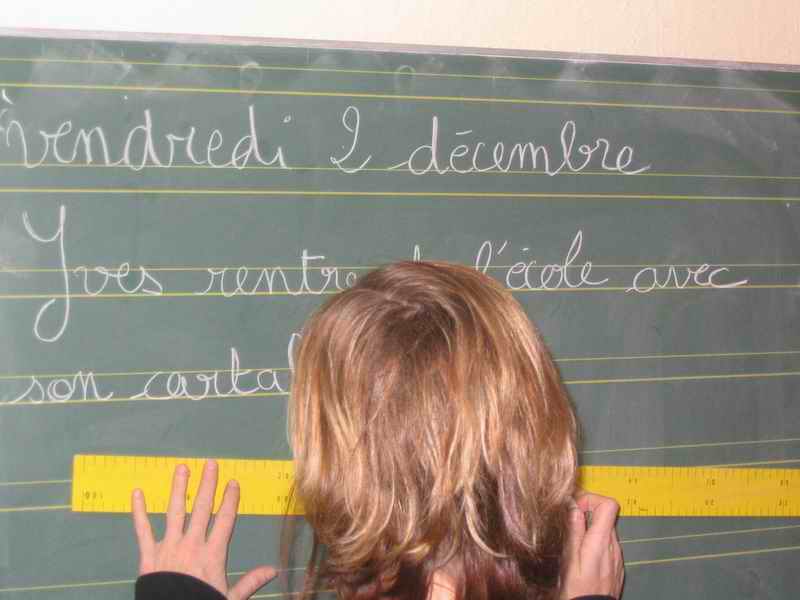 vendredi 2 décembre
Yves rentre l'école avec
son